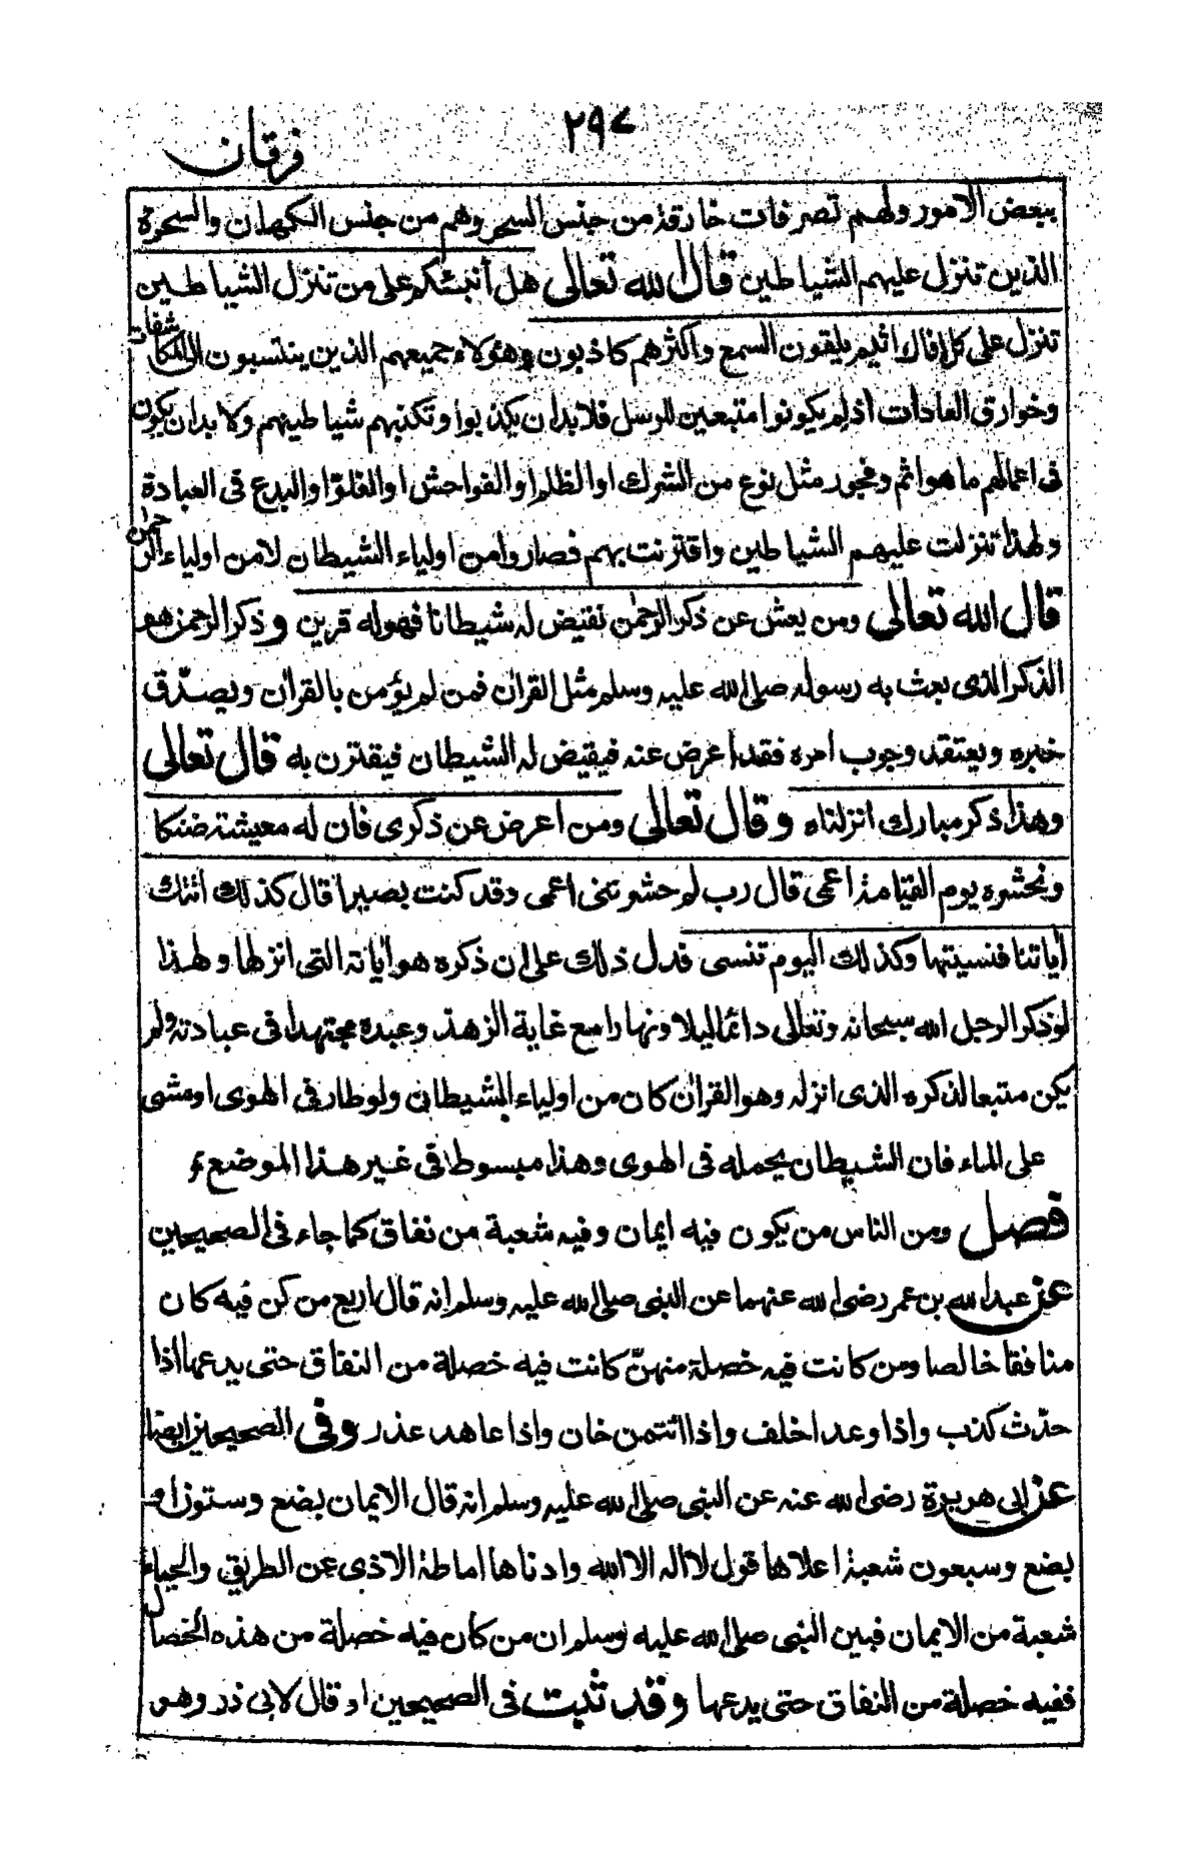 ٢٩٧
فرقان
ببعض الامور ولهم تصرفات خارقة من جنس السحر وهم من جنس الكهان والسحرة
الذين تنزل عليهم الشياطين قال الله تعالى هل أنبئكم على من تنزل الشياطين
تنزل على كل افاك اثيم يلقون السمع واكثرهم كاذبون وهٰولاء جميعهم الذين ينتسبون الى المكاشفات
وخوارق العادات اذلم يكونوا متبعين للرسل فلا بدان يكذبوا وتكذبهم شياطينهم ولا بدان يكون
فى اعمالهم ما هواثم وفجور مثل نوع من الشرك اوالظلم اوالفواحش اوالغلوّ اوالبدع فى العبادة
ولهذا تنزلت عليهم الشياطين واقترنت بهم فصاروا من اولياء الشيطان لامن اولياء الرحمٰن
قال الله تعالى ومن يعش عن ذكر الرحمٰن نقيض له شيطانا فهوله قرين وذكر الرحمن هو
الذكر الذى بعث به رسوله صلى الله عليه وسلم مثل القراٰن فمن لم يؤمن بالقراٰن ويصدّق
خبره ويعتقد وجوب امره فقد اعرض عنه فيقيض له الشيطان فيقترن به قال تعالى
وهذا ذكر مبارك انزلناه وقال تعالى ومن اعرض عن ذكرى فان له معيشة ضنكا
ونحشره يوم القيامة اعمى قال رب لم حشرتنى اعمى وقد كنت بصيرا قال كذلك اتتك
اٰياتنا فنسيتها وكذلك اليوم تنسى فدل ذلك على ان ذكره هو اٰياته التى انزلها ولهذا
لوذكر الرجل الله سبحانه وتعالى دائما ليلا ونهارا مع غاية الزهد وعبده مجتهدا فى عبادته ولم
يكن متبعا لذكره الذى انزله وهو القراٰن كان من اولياء الشيطان ولوطار فى الهوى اومشى
على الماء فان الشيطان يحمله فى الهوى وهذا مبسوط فى غير هذا الموضع
فصل ومن الناس من يكون فيه ايمان وفيه شعبة من نفاق كما جاء فى الصحيحين
عن عبد الله بن عمر رضى الله عنهما عن النبى صلى الله عليه وسلم انه قال اربع من كن فيه كان
منافقا خالصا ومن كانت فيه خصلة منهنّ كانت فيه خصلة من النفاق حتى يدعها اذا
حدّث كذب واذا وعد اخلف واذا ائتمن خان واذا عاهد غدر وفى الصحيحين ايضا
عن ابى هريرة رضى الله عنه عن النبى صلى الله عليه وسلم انه قال الايمان بضع وستون او
بضع وسبعون شعبة اعلاها قول لااله الا الله وادناها اماطة الاذى عن الطريق والحياء
شعبة من الايمان فبين النبى صلى الله عليه وسلم ان من كان فيه خصلة من هذه الخصال
ففيه خصلة من النفاق حتى يدعها وقد ثبت فى الصحيحين اد قال لابى ذر وهو